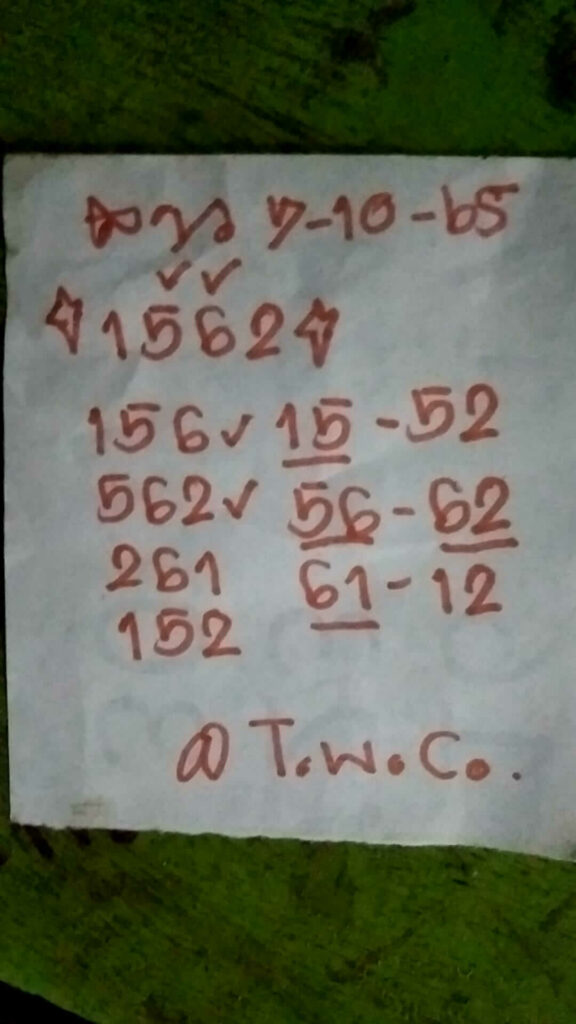 ลาว 7-10-65
1562
156✓ 15-52
562✓ 56-62
261 61-12
152
@ T.W.C..